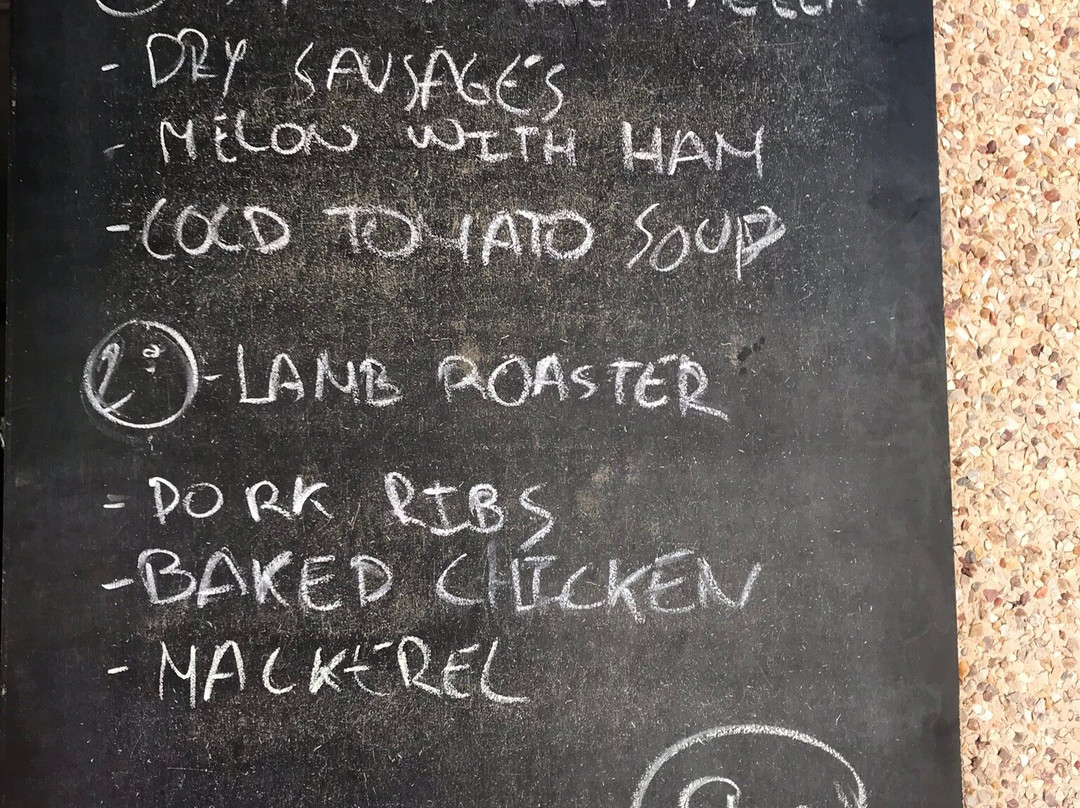 - DRY SAUSAGES
- MELON WITH HAM
- COLD TOMATO SOUP
2º - LAMB ROASTER
- PORK RIBS
- BAKED CHICKEN
- MACKEREL